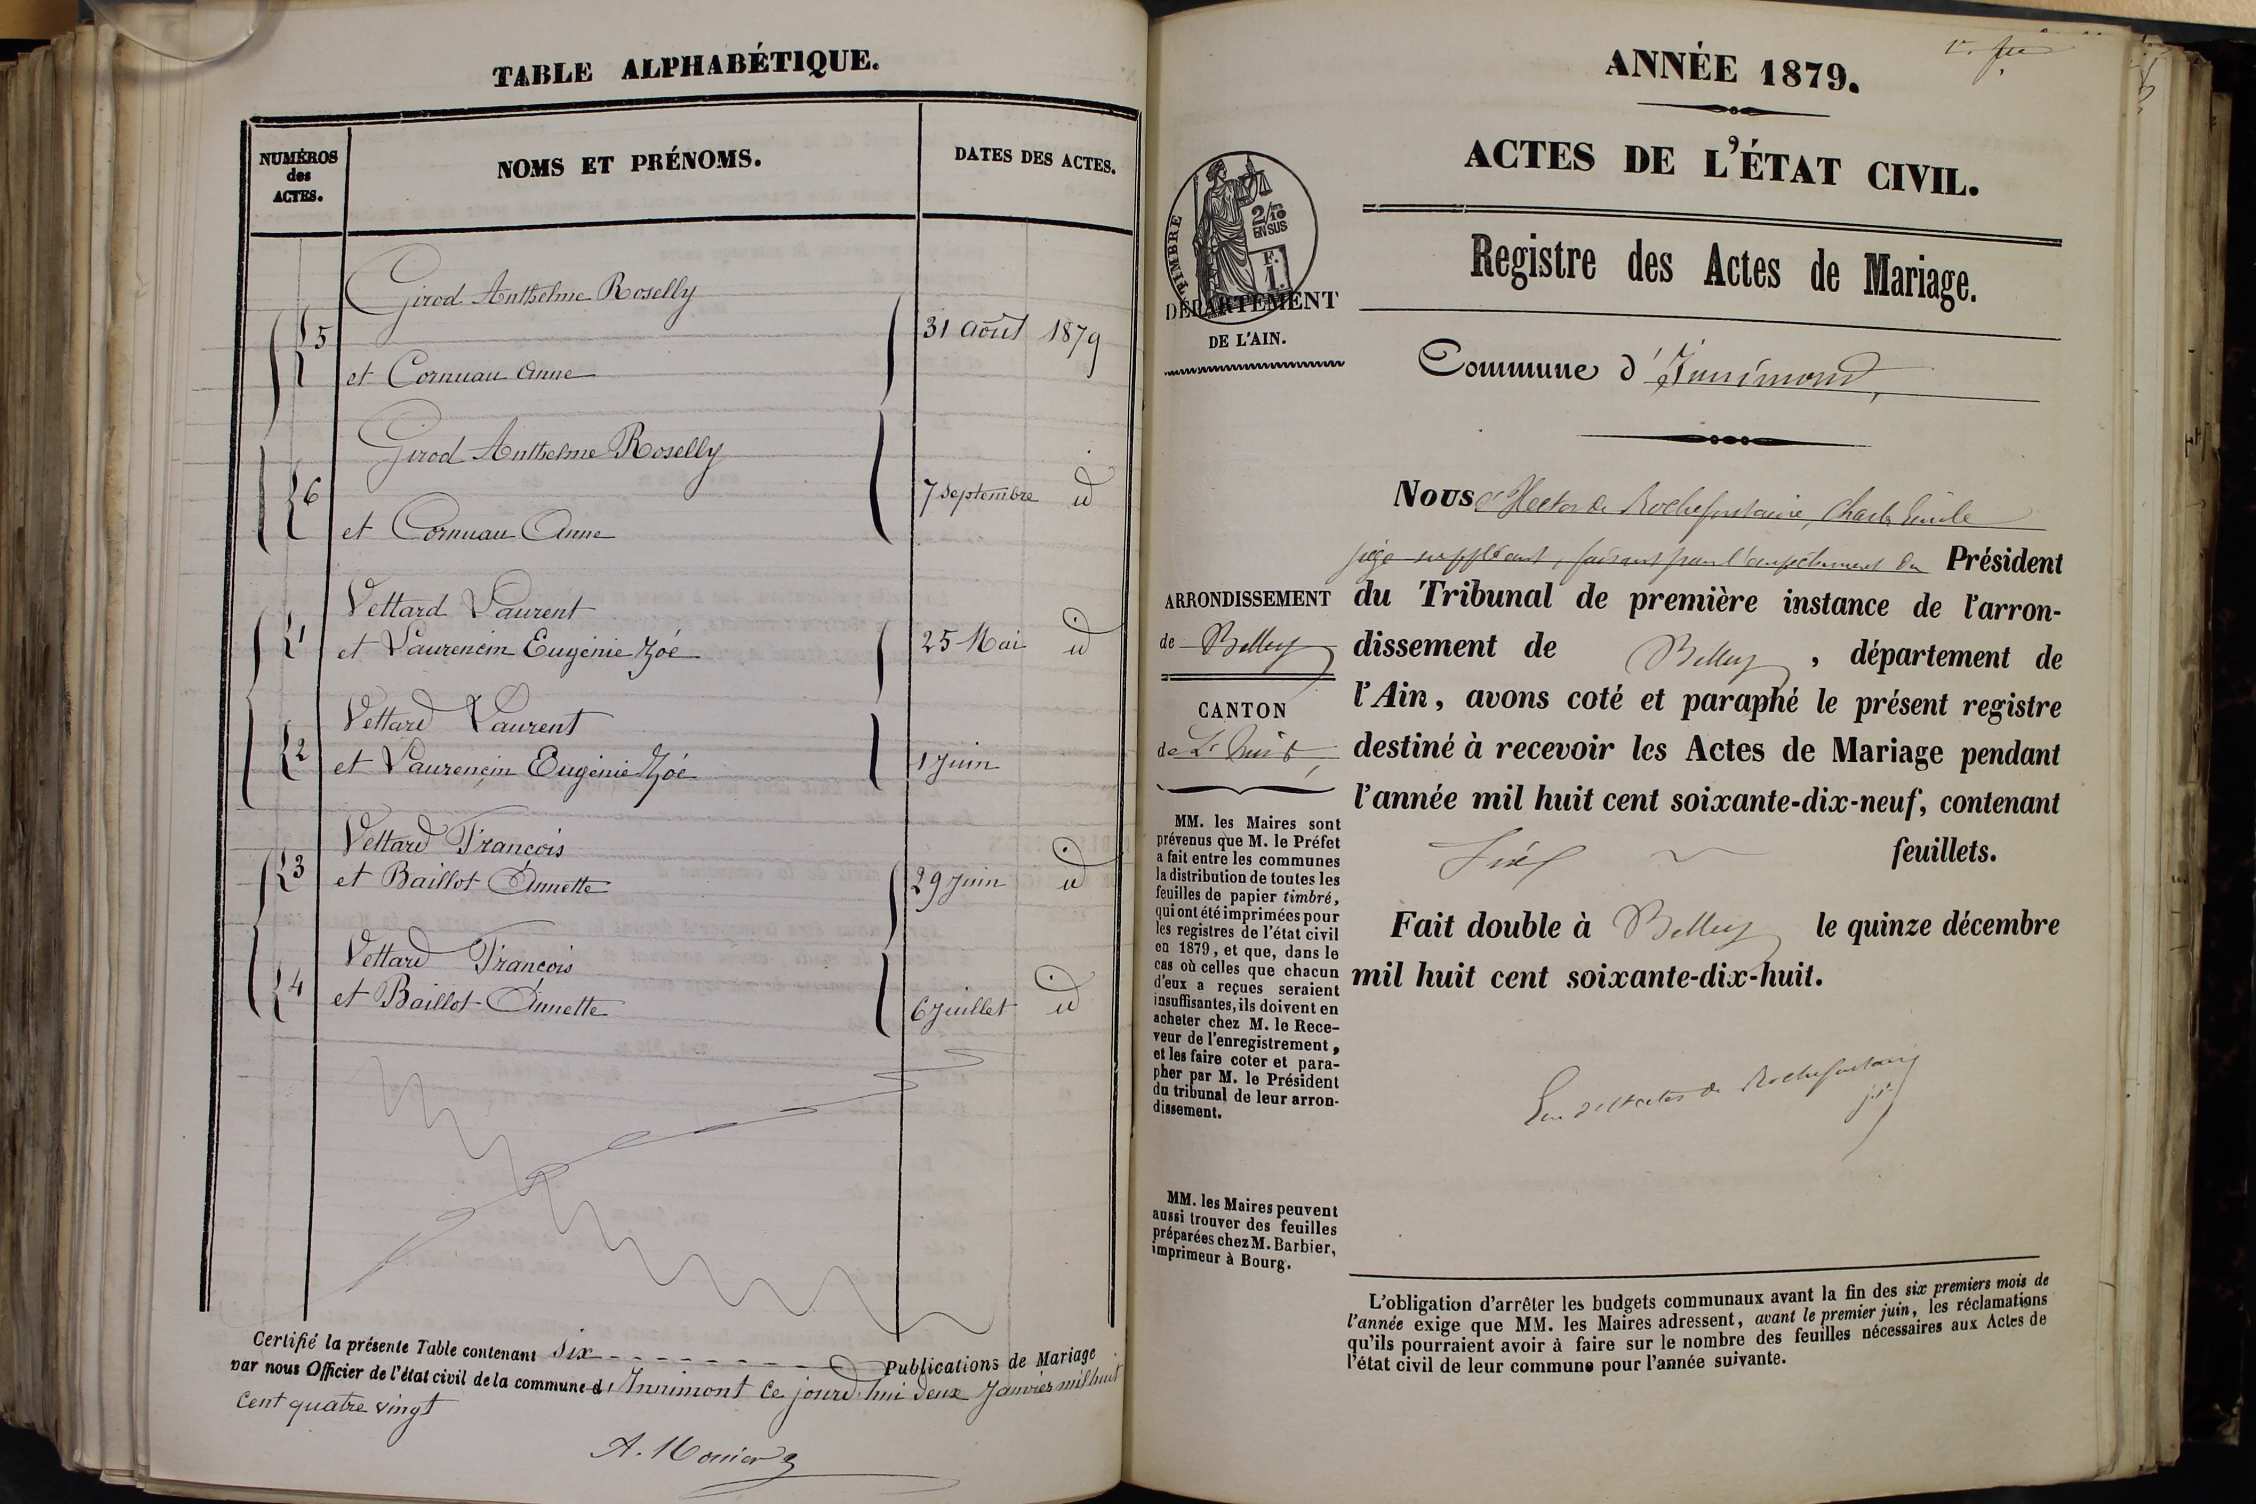 TABLE ALPHABÉTIQUE.
NUMÉROS
des
ACTES.
NOMS ET PRÉNOMS.
DATES DES ACTES.
Girod Anthelme Roselly
5
31 août 1879
et Cornuau Anne
Girod Anthelme Roselly
6
7 Septembre id
et Cornuau Anne
Vettard Laurent
1
et Laurencin Eugénie Zoé
25 Mai id
Vettard Laurent
2
et Laurençin Eugénie Zoé
1 Juin
Vettard François
3
et Baillot Annette
29 Juin id
Vettard François
4
et Baillot Annette
6 Juillet id
Certifié la présente Table contenant six Publications de Mariage
par nous Officier de l'état civil de la commune d'Innimont ce jourd'hui deux Janvier mil huit
Cent quatre vingt
A. Monier
ANNÉE 1879.
ACTES DE L'ÉTAT CIVIL.
Registre des Actes de Mariage.
TIMBRE
2/10
EN SUS
F.
1.
DÉPARTEMENT
DE L'AIN.
Commune d'Innimont,
ARRONDISSEMENT
de Belley
CANTON
de
MM. les Maires sont
prévenus que M. le Préfet
a fait entre les communes
la distribution de toutes les
feuilles de papier timbré,
qui ont été imprimées pour
les registres de l'état civil
en 1879, et que, dans le
cas où celles que chacun
d'eux a reçues seraient
insuffisantes, ils doivent en
acheter chez M. le Rece-
veur de l'enregistrement,
et les faire coter et para-
pher par M. le Président
du tribunal de leur arron-
dissement.
MM. les Maires peuvent
aussi trouver des feuilles
préparées chez M. Barbier,
imprimeur à Bourg.
Nous d'Hector de Rochefontaine, Charles Emile
juge suppléant, faisant pour l'empêchement du Président
du Tribunal de première instance de l'arron-
dissement de Belley, département de
l'Ain, avons coté et paraphé le présent registre
destiné à recevoir les Actes de Mariage pendant
l'année mil huit cent soixante-dix-neuf, contenant
feuillets.
Fait double à Belley le quinze décembre
mil huit cent soixante-dix-huit.
de Rochefontaine
L'obligation d'arrêter les budgets communaux avant la fin des six premiers mois de
l'année exige que MM. les Maires adressent, avant le premier juin, les réclamations
qu'ils pourraient avoir à faire sur le nombre des feuilles nécessaires aux Actes de
l'état civil de leur commune pour l'année suivante.